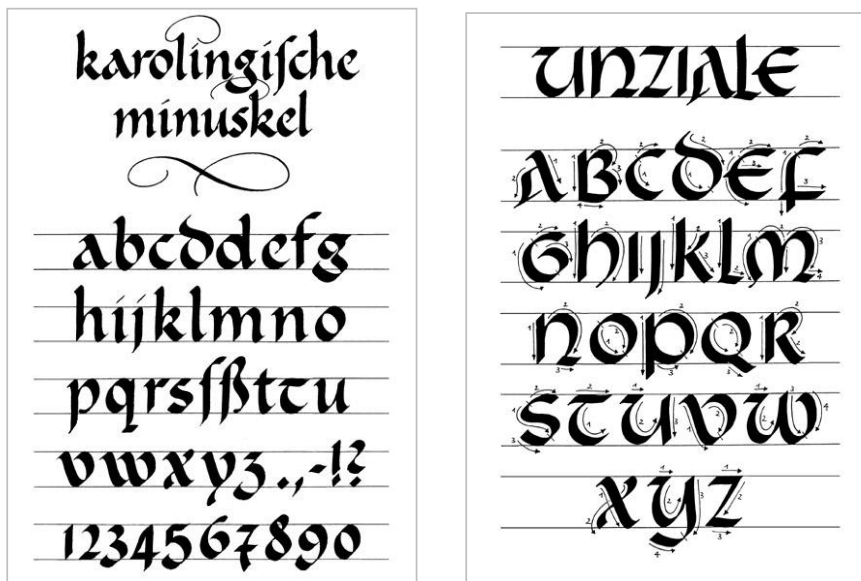 karolingiſche
minuskel
abcddefg
hijklmno
pqrsſßtτu
vwxyz.,-!?
1234567890
UNZIALE
ABCDEF
GHIJKLM
NOPQR
STUVW
XYZ